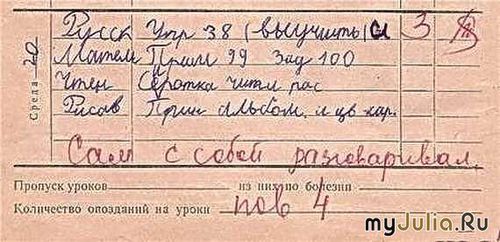 Среда 20
Русск Упр 38 (выучить) 3
Матем Прим 99 Зад 100
Чтен читл рас
Рисов Прин альбом. и цв кар.
Сам с собой разговаривал.
Пропуск уроков из них по болезни
Количество опозданий на уроки 4
myJulia.Ru